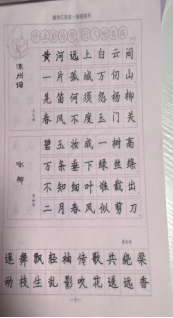 凉州词
黄河远上白云间
一片孤城万仞山
羌笛何须怨杨柳
春风不度玉门关
咏柳
碧玉妆成一树高
万条垂下绿丝绦
不知细叶谁裁出
二月春风似剪刀
逐舞飘轻袖传歌共绕梁
动枝生乱影吹花送远香